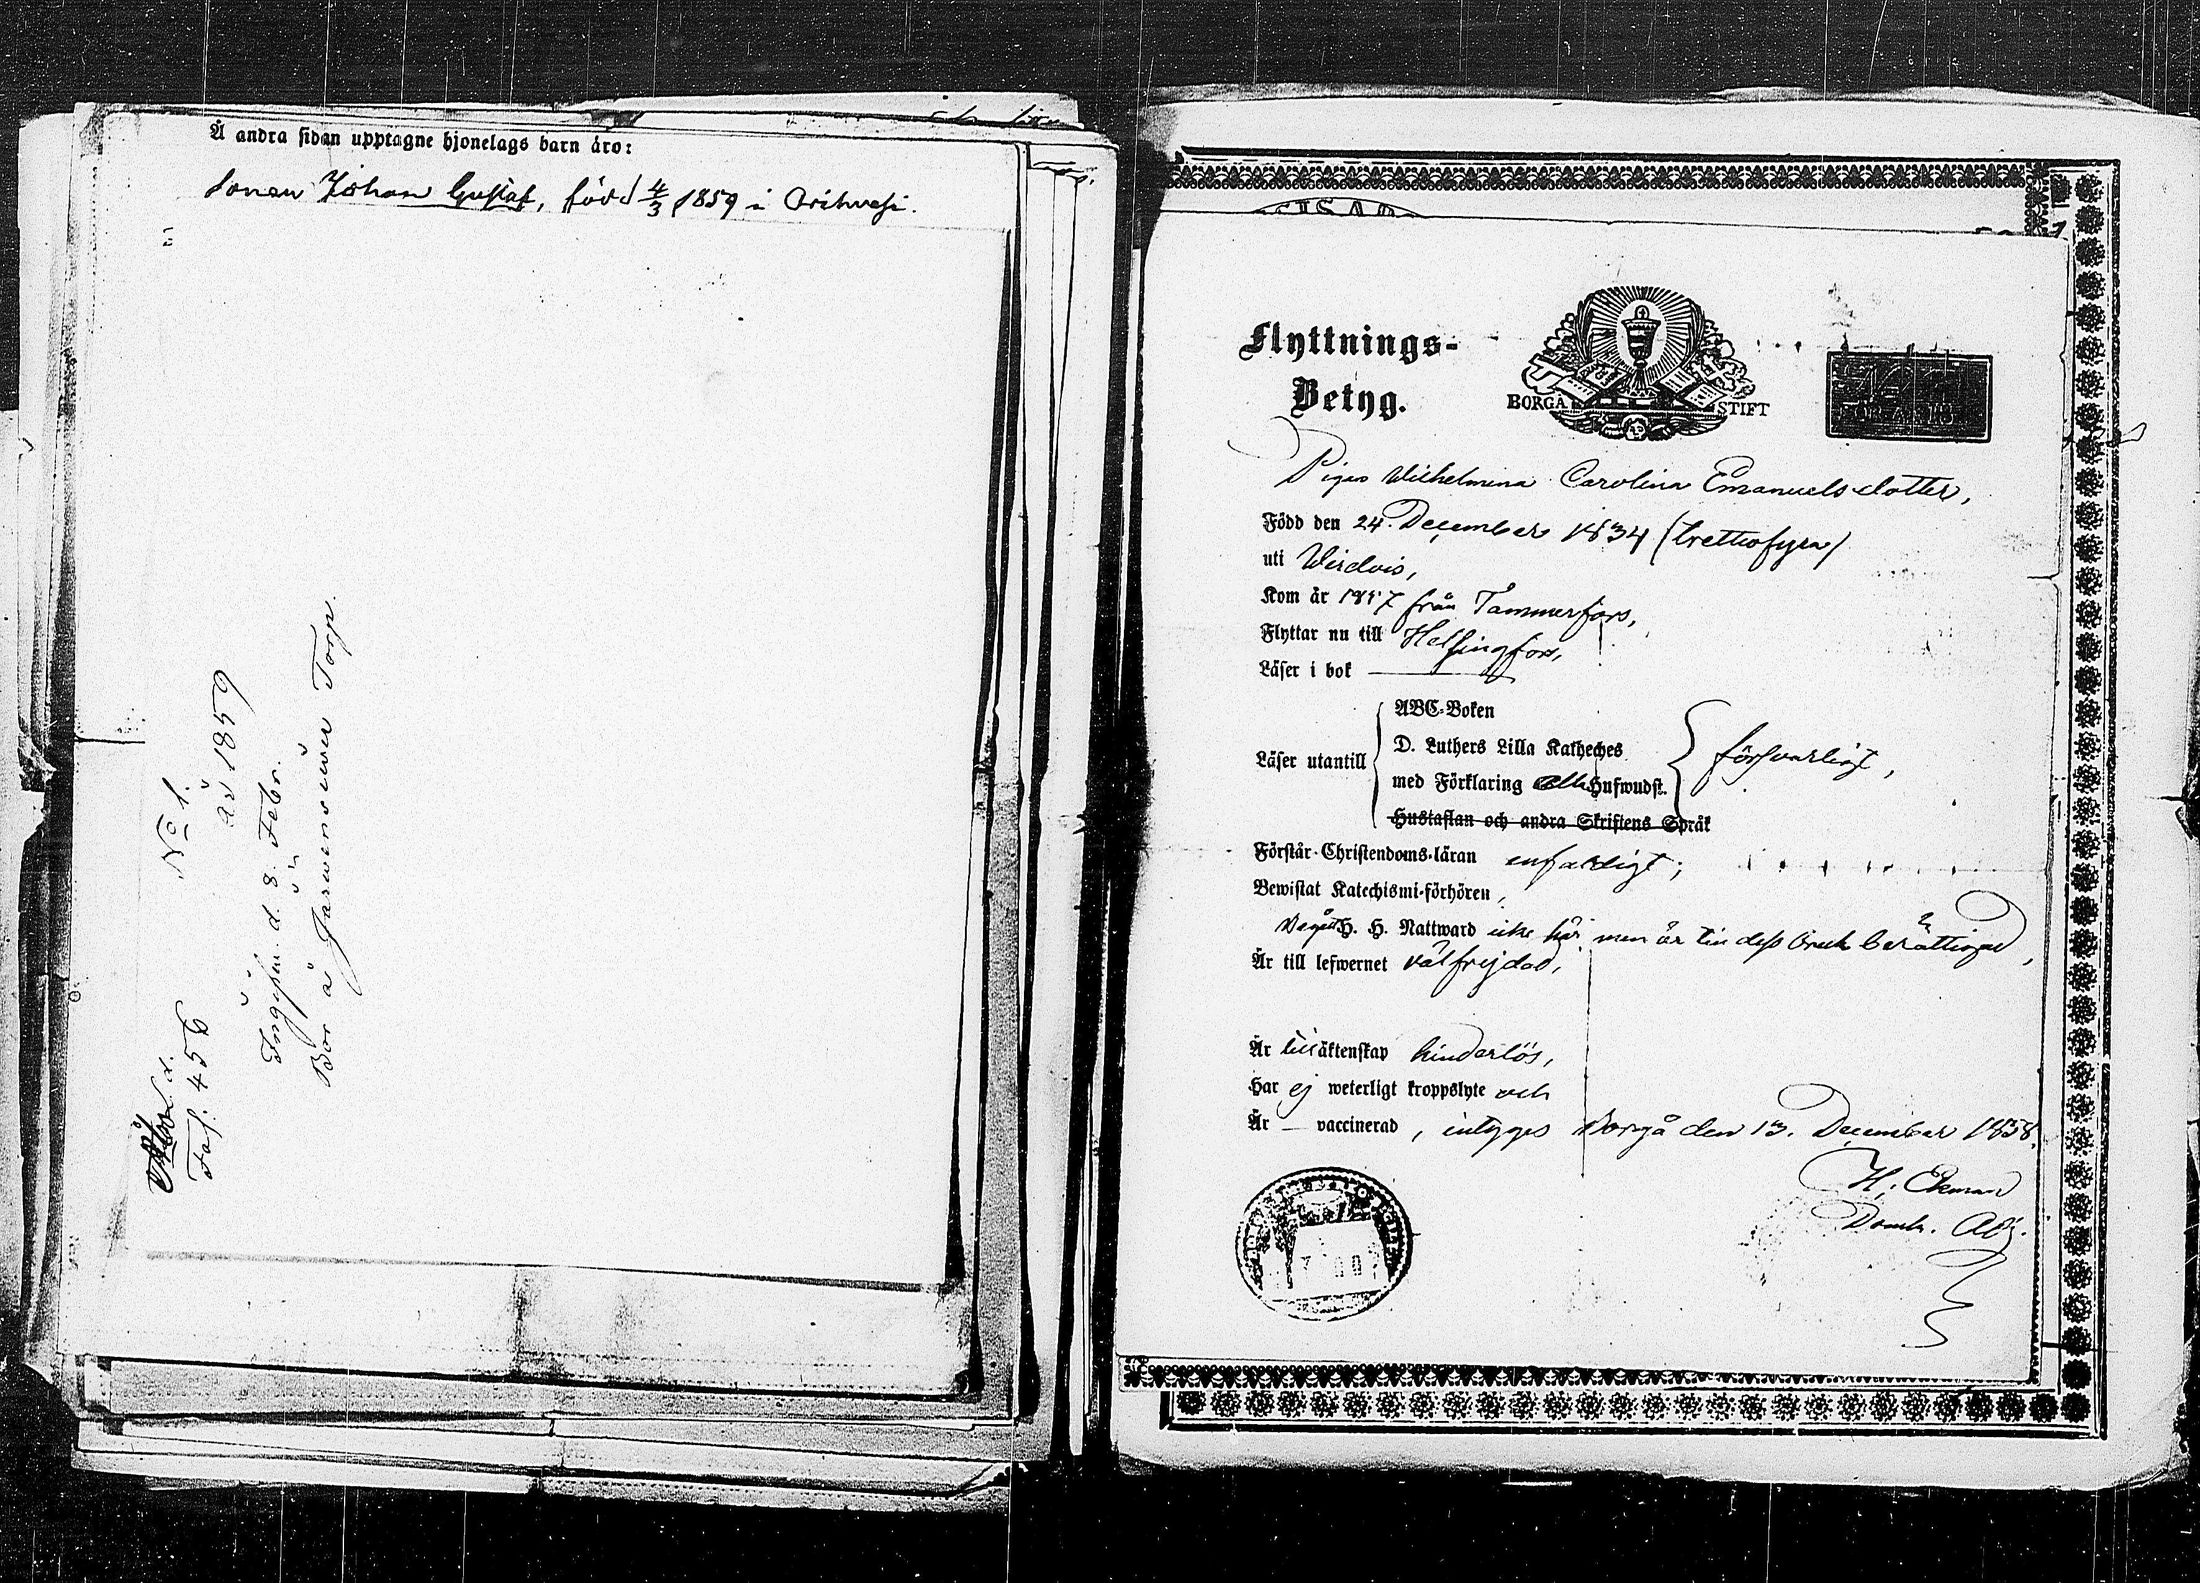 Å andra sidan upptagne hjonelags barn äro:
Sonen Johan Gustaf, född 4/3 1859 i Orihvesi.
No 1.
år 1859
Ingifven d. 8 Febr.
Bor å Jarwensiwu Torp.
Fol. 456
Flyttnings-
Betyg.
BORGÅ STIFT
Pigan Wilhelmina Carolina Emanuelsdotter,
Född den 24 December 1834 (trettiofyra)
uti Wirdois,
Kom år 1857 från Tammerfors,
Flyttar nu till Helsingfors,
Läser i bok —
ABC-Boken
D. Luthers Lilla Katheches
Läser utantill
försvarligt,
med Förklaring alla Hufwudst.
Hustaflan och andra Skriftens Språk
Förstår Christendoms-läran enfaldigt;
Bewistat Katechismi-förhören,
Begått H. H. Nattward icke här, men är till dess bruk berättigad,
Är till lefwernet välfrejdad,
Är till äktenskap hinderlös,
Har ej weterligt kroppslyte och
Är — vaccinerad, intygges Borgå den 13. December 1858.
H. Ekman
Domk. Adj.